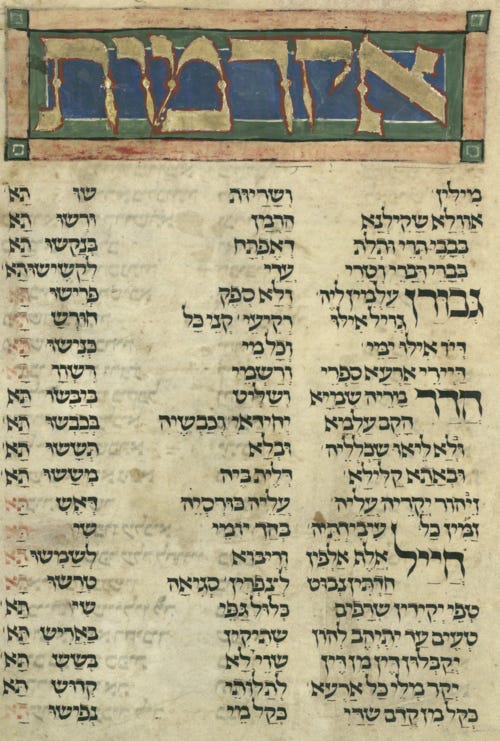 אקדמות
מילין ושריות שו תא
אוולא שקילנא הרמן ורשו תא
בבבי תרי ותלת דאפתח בנקשו תא
בברי דברי וטרי ערי לקשישו תא
גבורן עלמין ליה ולא ספק פרישו תא
גויל אילו רקיעי קני כל חורש תא
דיו אילו ימי וכל מי כנישו תא
דיירי ארעא ספרי ורשמי רשוו תא
הדר מריה שמיא ושליט ביבשו תא
הקם עלמא יחידאי וכבשיה בכבשו תא
ולא ליאו שכלליה ובלא תששו תא
ובאתא קלילא דלית ביה מששו תא
זיהור יקריה עליה עליה כורסיה דאש תא
זמין כל עיבידתיה בהך יומי שי תא
חייל אלף אלפין וריבוא לשמשו תא
חדתין נבוט לצפרין סגיאה טרשו תא
טפי יקידין שרפים כלול גפי שי תא
טעים עד יתיהב להון שתיקין באדיש תא
יקבלון דין מן דין שוי לא בשש תא
יקר מלי כל ארעא לתלותי קדוש תא
כקל מן קדם שדי כקל מי נפישו תא